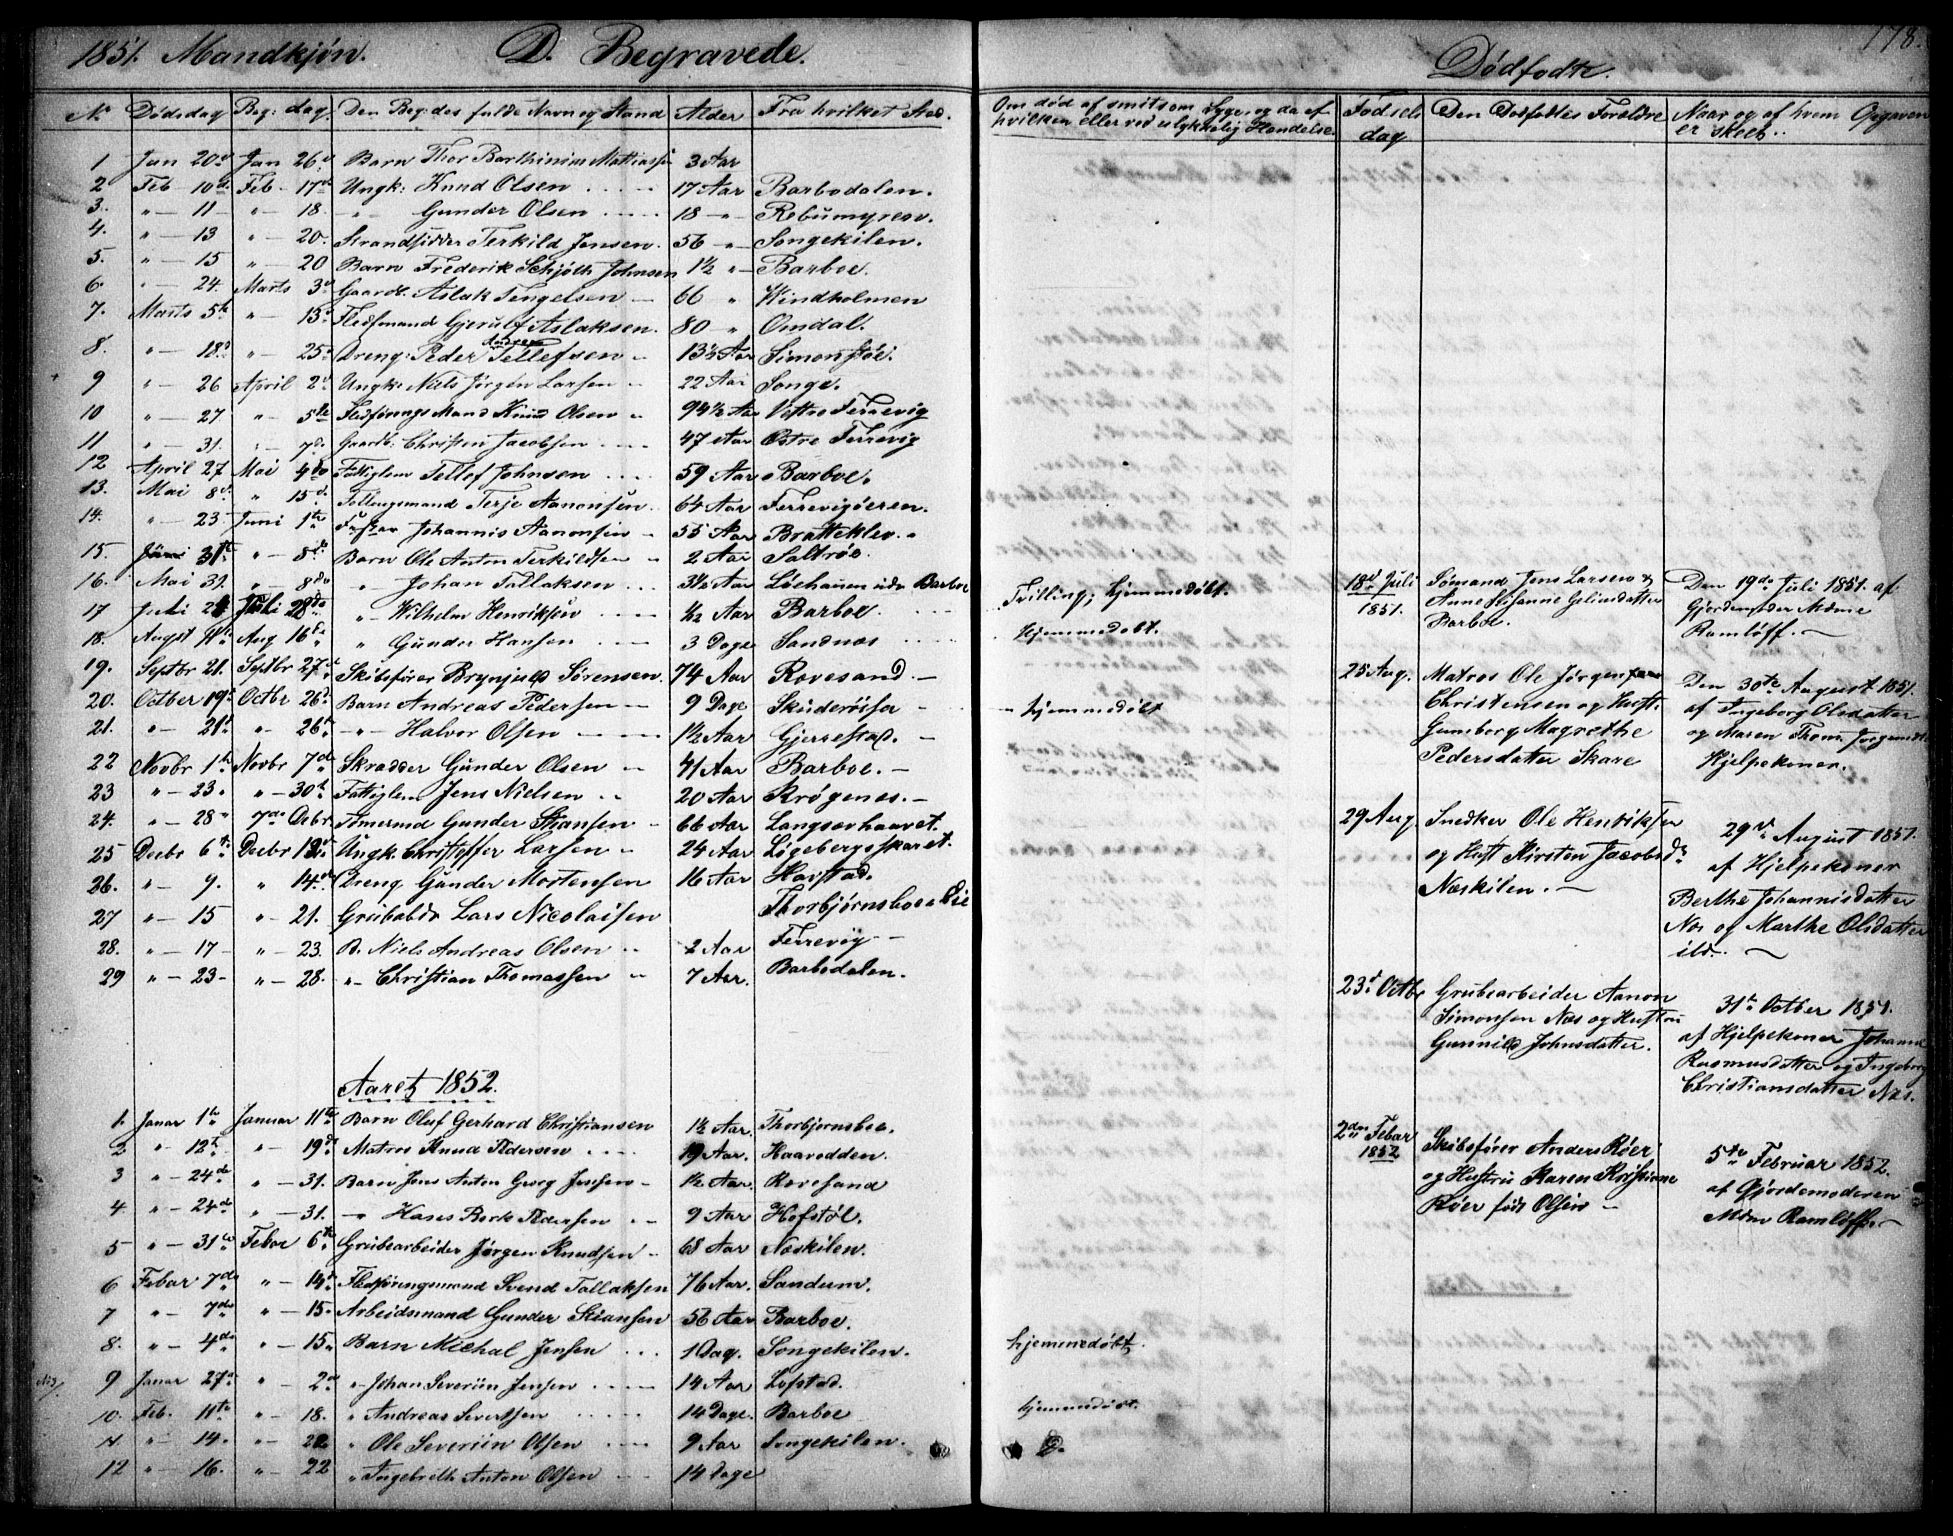 1851. Mandkjøn. D. Begravede.
No Dødsdag Beg: dag. Den Beg:des fulde Navn og Stand Alder Fra hvilket Sted.
1 Jan 20 Jan 26 Barn Thor Barthinius Mathiassen 3 Aar
2 Feb 10de Feb - 17de Ungk: Knud Olsen 17 Aar Barbodalen.
3. " - 11 " - 18. " - Gunder Olsen 18 " - Rebumyrene.
4. " - 13 " - 20. Strandsidder Terkild Jensen. 56 " - Songekilen.
5. " - 15 " - 20 Barn Frederik Schjøth Johnsen 1½ " - Barboe.
6. " - 24. Marts 3d Gaardb. Aslak Tengelsen 66 " Windholmen
7. Marts 5te " - 13d Fledfmand Gjerulf Aslaksen. 80 " Omdal.
8. " - 18d " - 25d Dreng: Peder Tellefsen 13½ Aar Simonstøl.
9 " - 26 April 2d Ungk: Niels Jørgen Larsen 22 Aar Songe.
10 " - 27 " - 5te Fledførings Mand Knud Olsen 94½ Aar Vestre Ferrevig
11 " - 31. " - 7de Gaardb: Christen Jacobsen 47 Aar Østre Ferrevig
12 April 27 Mai 4de Fattiglem Tellef Johnsen 59 Aar Barboe.
13. Mai 8d " 15d Terje Aanonsen 64 Aar Ferrevigøeren.
14. " - 23. Juni 1te Johannis Aanonsen 55 Aar Bratteklev.
15. 31te " - 8de Barn Ole Anton Terkildsen 2 Aar Saltrøe.
16. Mai 31. " - 8de " Johan Tallaksen 3½ Aar Barboe
17 Juli 21 Juli 28de " Wilhelm Henriksen ½ Aar Barboe.
18. Augst 11te Aug 16de " Gunder Hansen 3 Dage Sandnæs
19. Septbr 21. Septbr 27de Skibsfører Brynjuld Sørensen. 74 Aar Rovesand.
20. Octber 19d Octbr 26d Barn Andreas Pedersen 9 Dage
21. " - 21d " - 26de " - Halvor Olsen 1½ Aar Gjerrestad.
22 Novbr 1te Novbr 7de Skrædder Gunder Olsen 41 Aar Barboe.
23 " - 23. " - 30te Fattiglem Jens Nielsen 20 Aar Krøgenæs.
24. " - 28 7de Decbr Gunder Stiansen 66 Aar Langsævhaavet.
25 Decbr 6te Decbr 13 Ungk. Christoffer Larsen 24 Aar Løgebergsskaret.
26. " - 9. " 14de Dreng Gunder Mortensen 16 Aar Havstad.
27 " - 15 " - 21. Lars Nicolaisen Thorbjørnsboe Eie
28. " - 17 " - 23. B. Niels Andreas Olsen 2 Aar Ferrevig
29 " - 23 " - 28. " - Christian Thomassen 7 Aar. Barbodalen.
Aaret 1852.
1. Januar 1te Januar 11te Barn Oluf Gerhard Christiansen 1½ Aar. Thorbjørnsboe.
2 " - 12te " - 19de Matros Knud Pedersen 19 Aar. Haavodden.
3 " - 24de " - 31. Barn Jens Anton Georg Jensen 1½ Aar. Rovesand
4 " - 24de " - 31. " Hans Bork Pedersen 9 Aar Hofstøl.
5 " - 31te Febar 6te Grubearbeider Jørgen Knudsen 68 Aar Næskilen.
6 Febar 7de " - 14d Fledføringsmand Svend Tallaksen 76 Aar. Sandum.
7 " - 7de " - 15. Arbeidsmand Gunder Stiansen 56 Aar Barboe.
8. " - 4de " - 15. Barn Michal Jensen 1 Dag. Songekilen.
9 Janar 27d " - 2d " Johan Severin Jensen 14 Aar Lofstad.
10. Feb. 11te " - 18. " Andreas Severtsen 14 Dage. Barboe
11 " - 14. " - 22 " Ole Severiin Olsen 9 Aar Songekilen.
12 " - 16. " - 22 " Ingebreth Anton Olsen 14 Dage
178.
Dødfødte.
Om død af smitsom Syge, og da af hvilken eller ved ulykkelig Hændelse.
Fødsels dag
Den Dødfødtes Forældre
Naar og af hvem Opgaven er skeet.
Tvilling, hjemmedøbt.
hjemmedøbt.
hjemmedøbt
hjemmedøbt.
hjemmedøbt.
18d Juli 1851.
Sømand Jens Larsen &
Anne Barboe.
Den 19de Juli 1851. af
Gjordemoder Madme
Ramløff.
25 Aug.
Matros Ole Jørgen
Christensen og Hust.
Gunborg Magrethe
Pedersdatter Skare
Den 30te August 1851.
af Ingeborg Olsdatter
og Maren Thom. Jørgensdt
Hjelpekoner.
29 Aug
Snedker Ole Henriksen
og Hust Kirsten Jacobsdr
Næskilen.
29de August 1851.
af Hjelpekoner
Berthe Johannisdatter
Næs og Marthe Olsdatter
ibd.
23d Octbr
Grubearbeider Aanon
Simonsen Næs og Hustru
Gunnild Johnsdatter.
31te Octber 1851.
af Hjelpekoner Johanne
Rasmusdatter og Ingeborg
Christiansdatter Næs.
2den Febar 1852
Skibsfører Anders Røer
og Hustru Karen Kristine
Røer født Olsen
5te Februar 1852.
af Gjordemoderen
Mdm Ramløff.